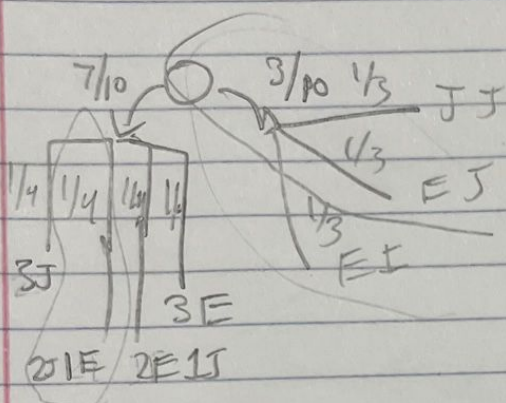 7/10 3/10 1/3 J J
1/3
E J
1/4 1/4 1/4 1/4
1/3
E I
3J
3E
2J1E 2E1J